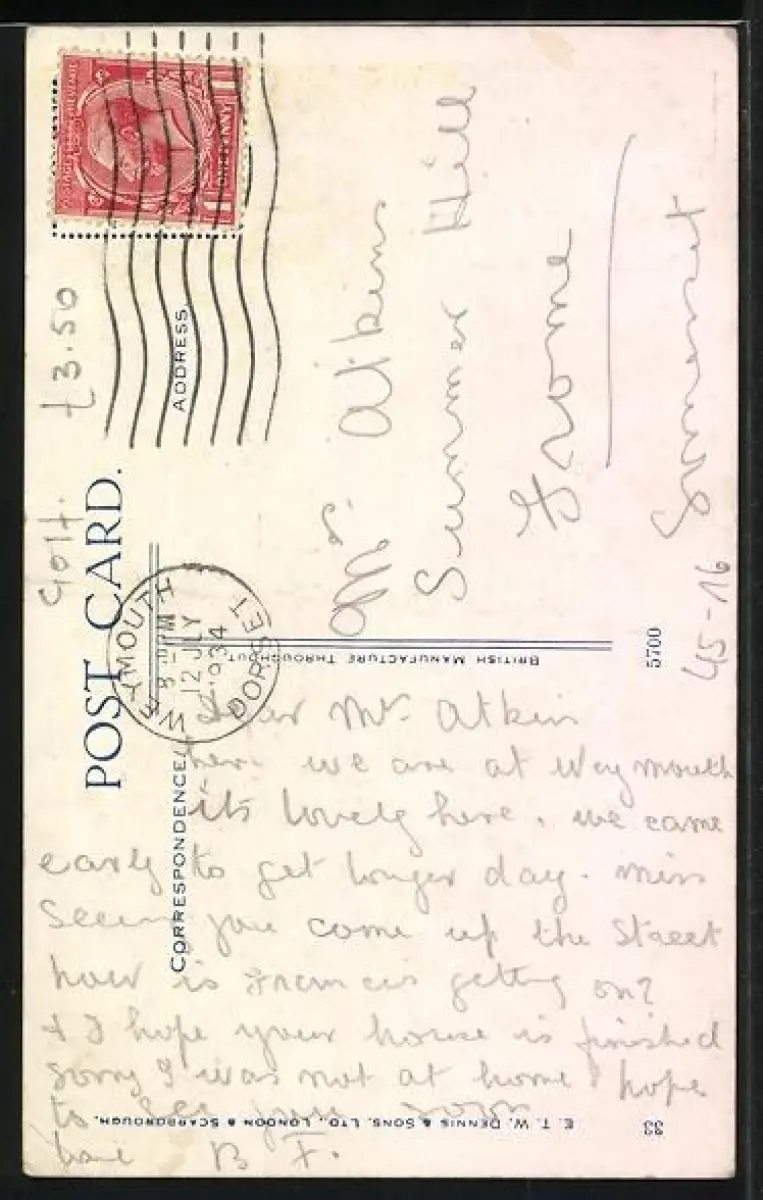 POSTAGE REVENUE
ONE PENNY
£3.50
Golf.
POST CARD.
CORRESPONDENCE.
ADDRESS
WEYMOUTH
12 JLY
1934
DORSET
BRITISH MANUFACTURE THROUGHOUT
5700
45-16
Mr. Atkins
Summer Hill
Frome
Somerset
Dear Mr Atkin
here we are at Weymouth
its lovely here. we came
early to get longer day. miss
seeing you come up the Street
how is Francis getting on?
& I hope your house is finished
sorry I was not at home hope
to see you soon
B F.
E. T. W. DENNIS & SONS, LTD., LONDON & SCARBOROUGH.
33